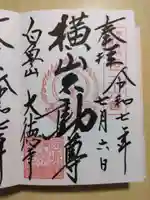 奉拝
令和七年
七月六日
横山不動尊
白魚山
大徳寺